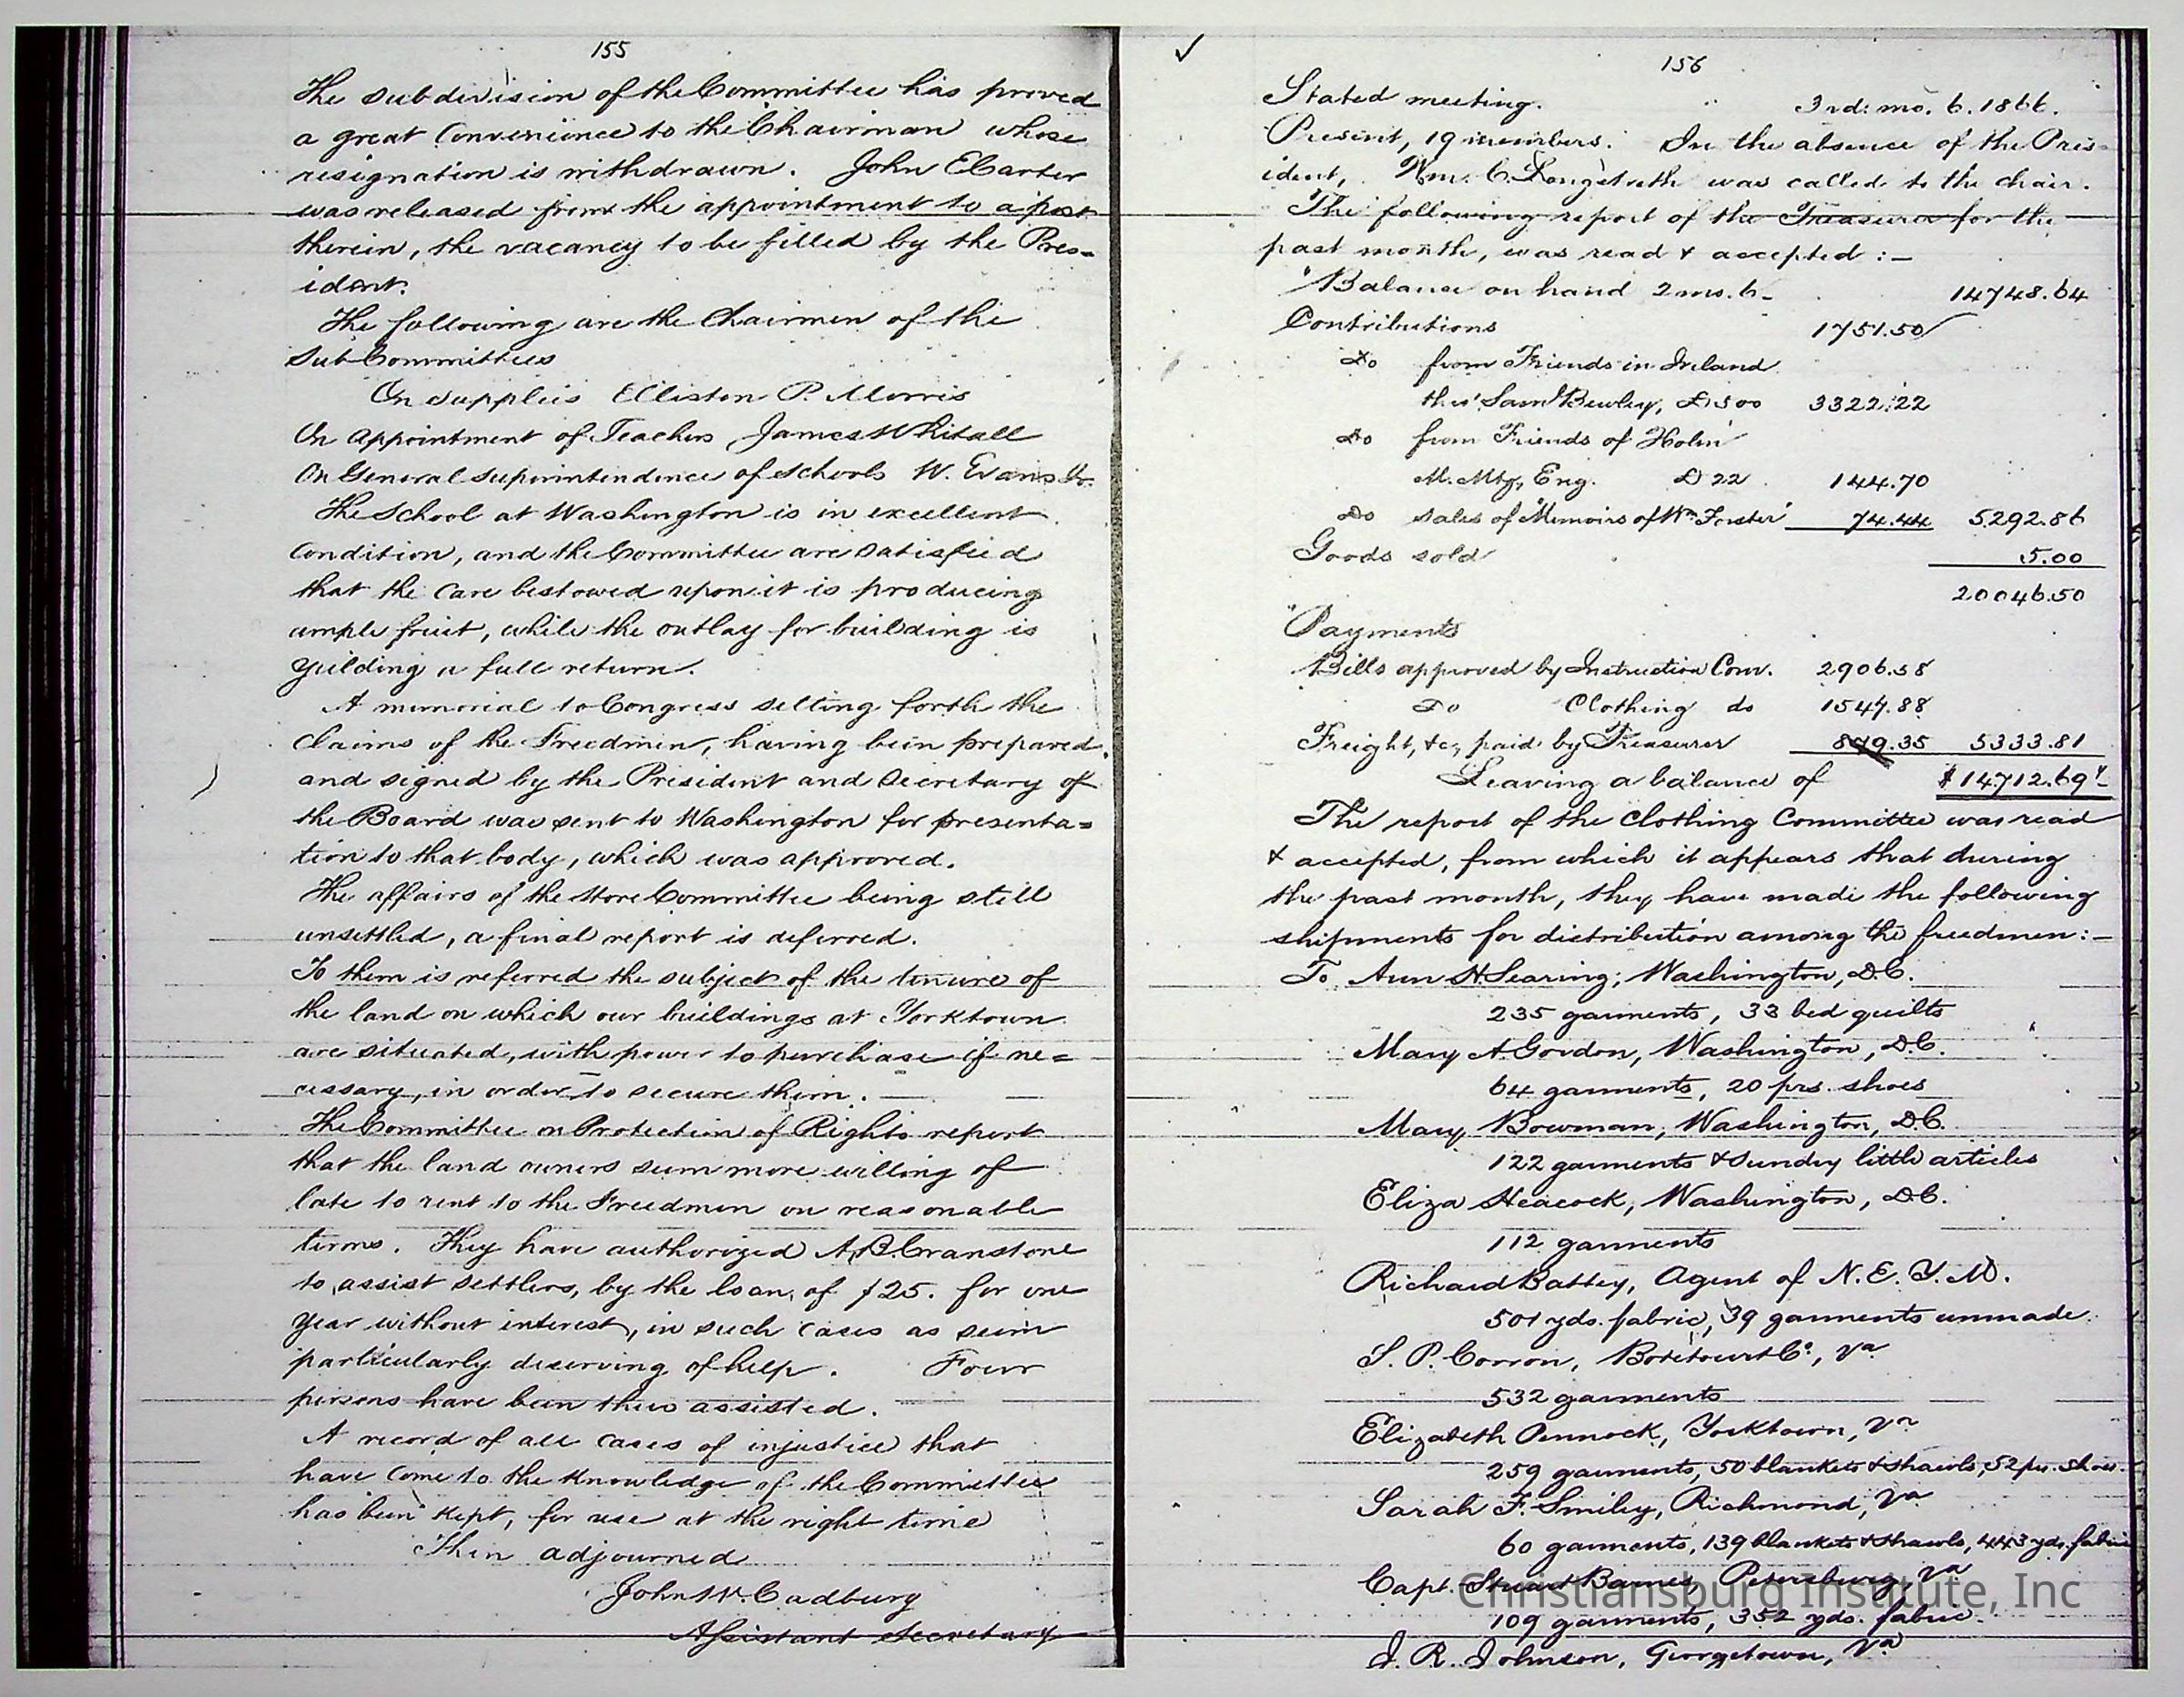 155
The subdivision of the Committee has proved
a great Convenience to the Chairman whose
resignation is withdrawn. John E Carter
was released from the appointment to a post
therein, the vacancy to be filled by the Pres=
ident.
The following are the Chairmen of the
Sub Committees
On supplies Elliston P. Morris
On Appointment of Teachers James Whitall
On General superintendence of schools W. Evans Jr.
The School at Washington is in excellent
Condition, and the Committee are satisfied
that the Care bestowed upon it is producing
ample fruit, while the outlay for building is
yeilding a full return.
A memorial to Congress setting forth the
Claims of the Freedmen, having been prepared
and signed by the President and Secretary of
the Board was sent to Washington for presenta=
tion to that body, which was approved.
The affairs of the Store Committee being still
unsettled, a final report is deferred.
To them is referred the subject of the tenure of
the land on which our buildings at Yorktown
are situated, with power to purchase if ne=
cessary, in order to secure them.
The Committee on Protection of Rights report
that the land owners seem more willing of
late to rent to the Freedmen on reasonable
terms. They have authorized A.B. Cranstone
to assist settlers, by the loan of $25. for one
year without interest, in such cases as seem
particularly deserving of help. Four
persons have been thus assisted.
A record of all cases of injustice that
have Come to the Knowledge of the Committee
has been kept, for use at the right time
Then adjourned
John W. Cadbury
Assistant Secretary
156
Stated meeting. 3rd: mo. 6. 1866.
Present, 19 members. In the absence of the Pres-
ident, Wm. C. Longstreth was called to the chair.
The following report of the Treasurer for the
past month, was read & accepted :—
"Balance on hand 2 mo. 6- 14748.64
Contributions 1751.50
Do from Friends in Ireland
thro' Saml Bewley, £500 3322.22
Do from Friends of Holm
M. Mtg, Eng. £22 144.70
Do sales of "Memoirs of Wm Forster" 74.44 5292.86
Goods sold 5.00
20046.50
"Payments
Bills approved by Instruction Com. 2906.58
Do Clothing do 1547.88
Freight, &c, paid by Treasurer 879.35 5333.81
Leaving a balance of $14712.69"
The report of the Clothing Committee was read
& accepted, from which it appears that during
the past month, they have made the following
shipments for distribution among the freedmen :—
To Ann H. Searing, Washington, D.C.
235 garments, 33 bed quilts
Mary A. Gordon, Washington, D.C.
64 garments, 20 prs. shoes
Mary Bowman, Washington, D.C.
122 garments & sundry little articles
Eliza Heacock, Washington, D.C.
112 garments
Richard Battey, Agent of N. E. Y. M.
501 yds. fabric, 39 garments unmade
S. P. Corron, Botetourt Co., Va
532 garments
Elizabeth Pennock, Yorktown, Va
259 garments, 50 blankets & shawls, 52 prs. shoes
Sarah F. Smiley, Richmond, Va
60 garments, 139 blankets & shawls, 443 yds. fabric
Capt. Stuart Barnes, Petersburg, Va
Christiansburg Institute, Inc
109 garments, 352 yds. fabric.
J. R. Johnson, Georgetown, Va